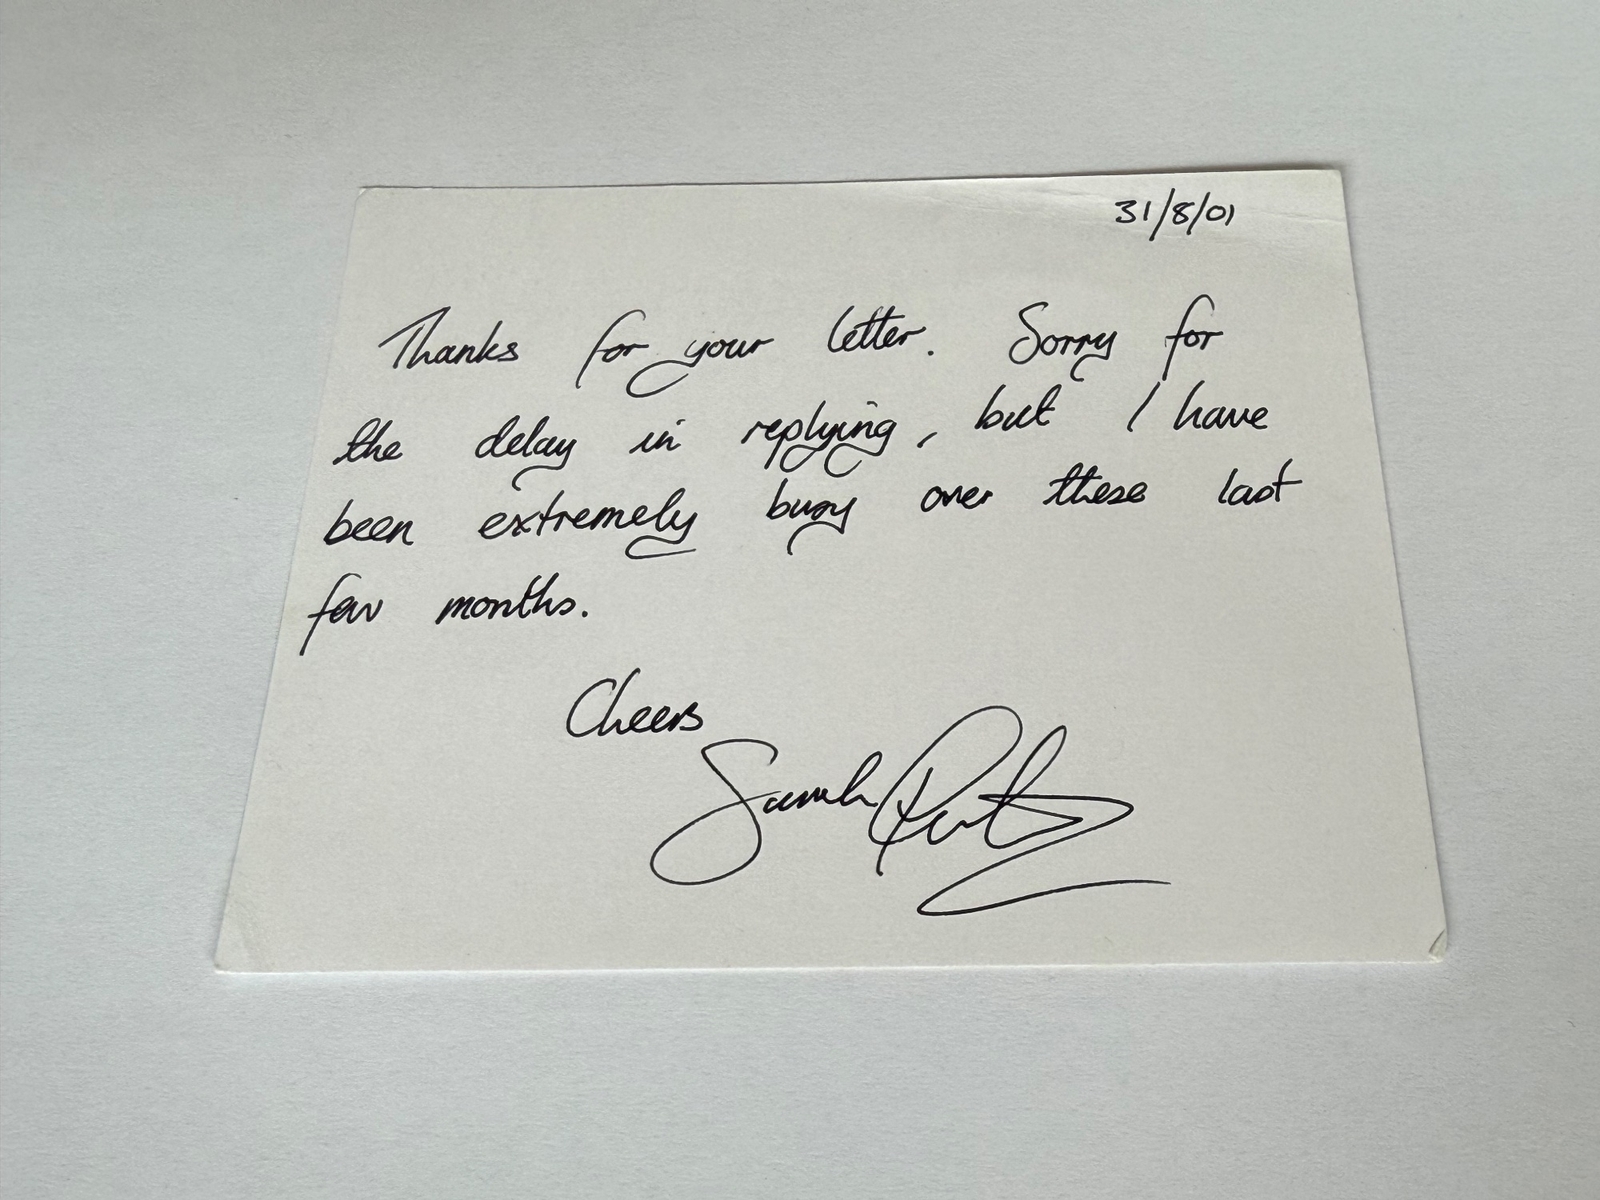 31/8/01
Thanks for your letter. Sorry for
the delay in replying, but I have
been extremely busy over these last
few months.
Cheers
Sarah